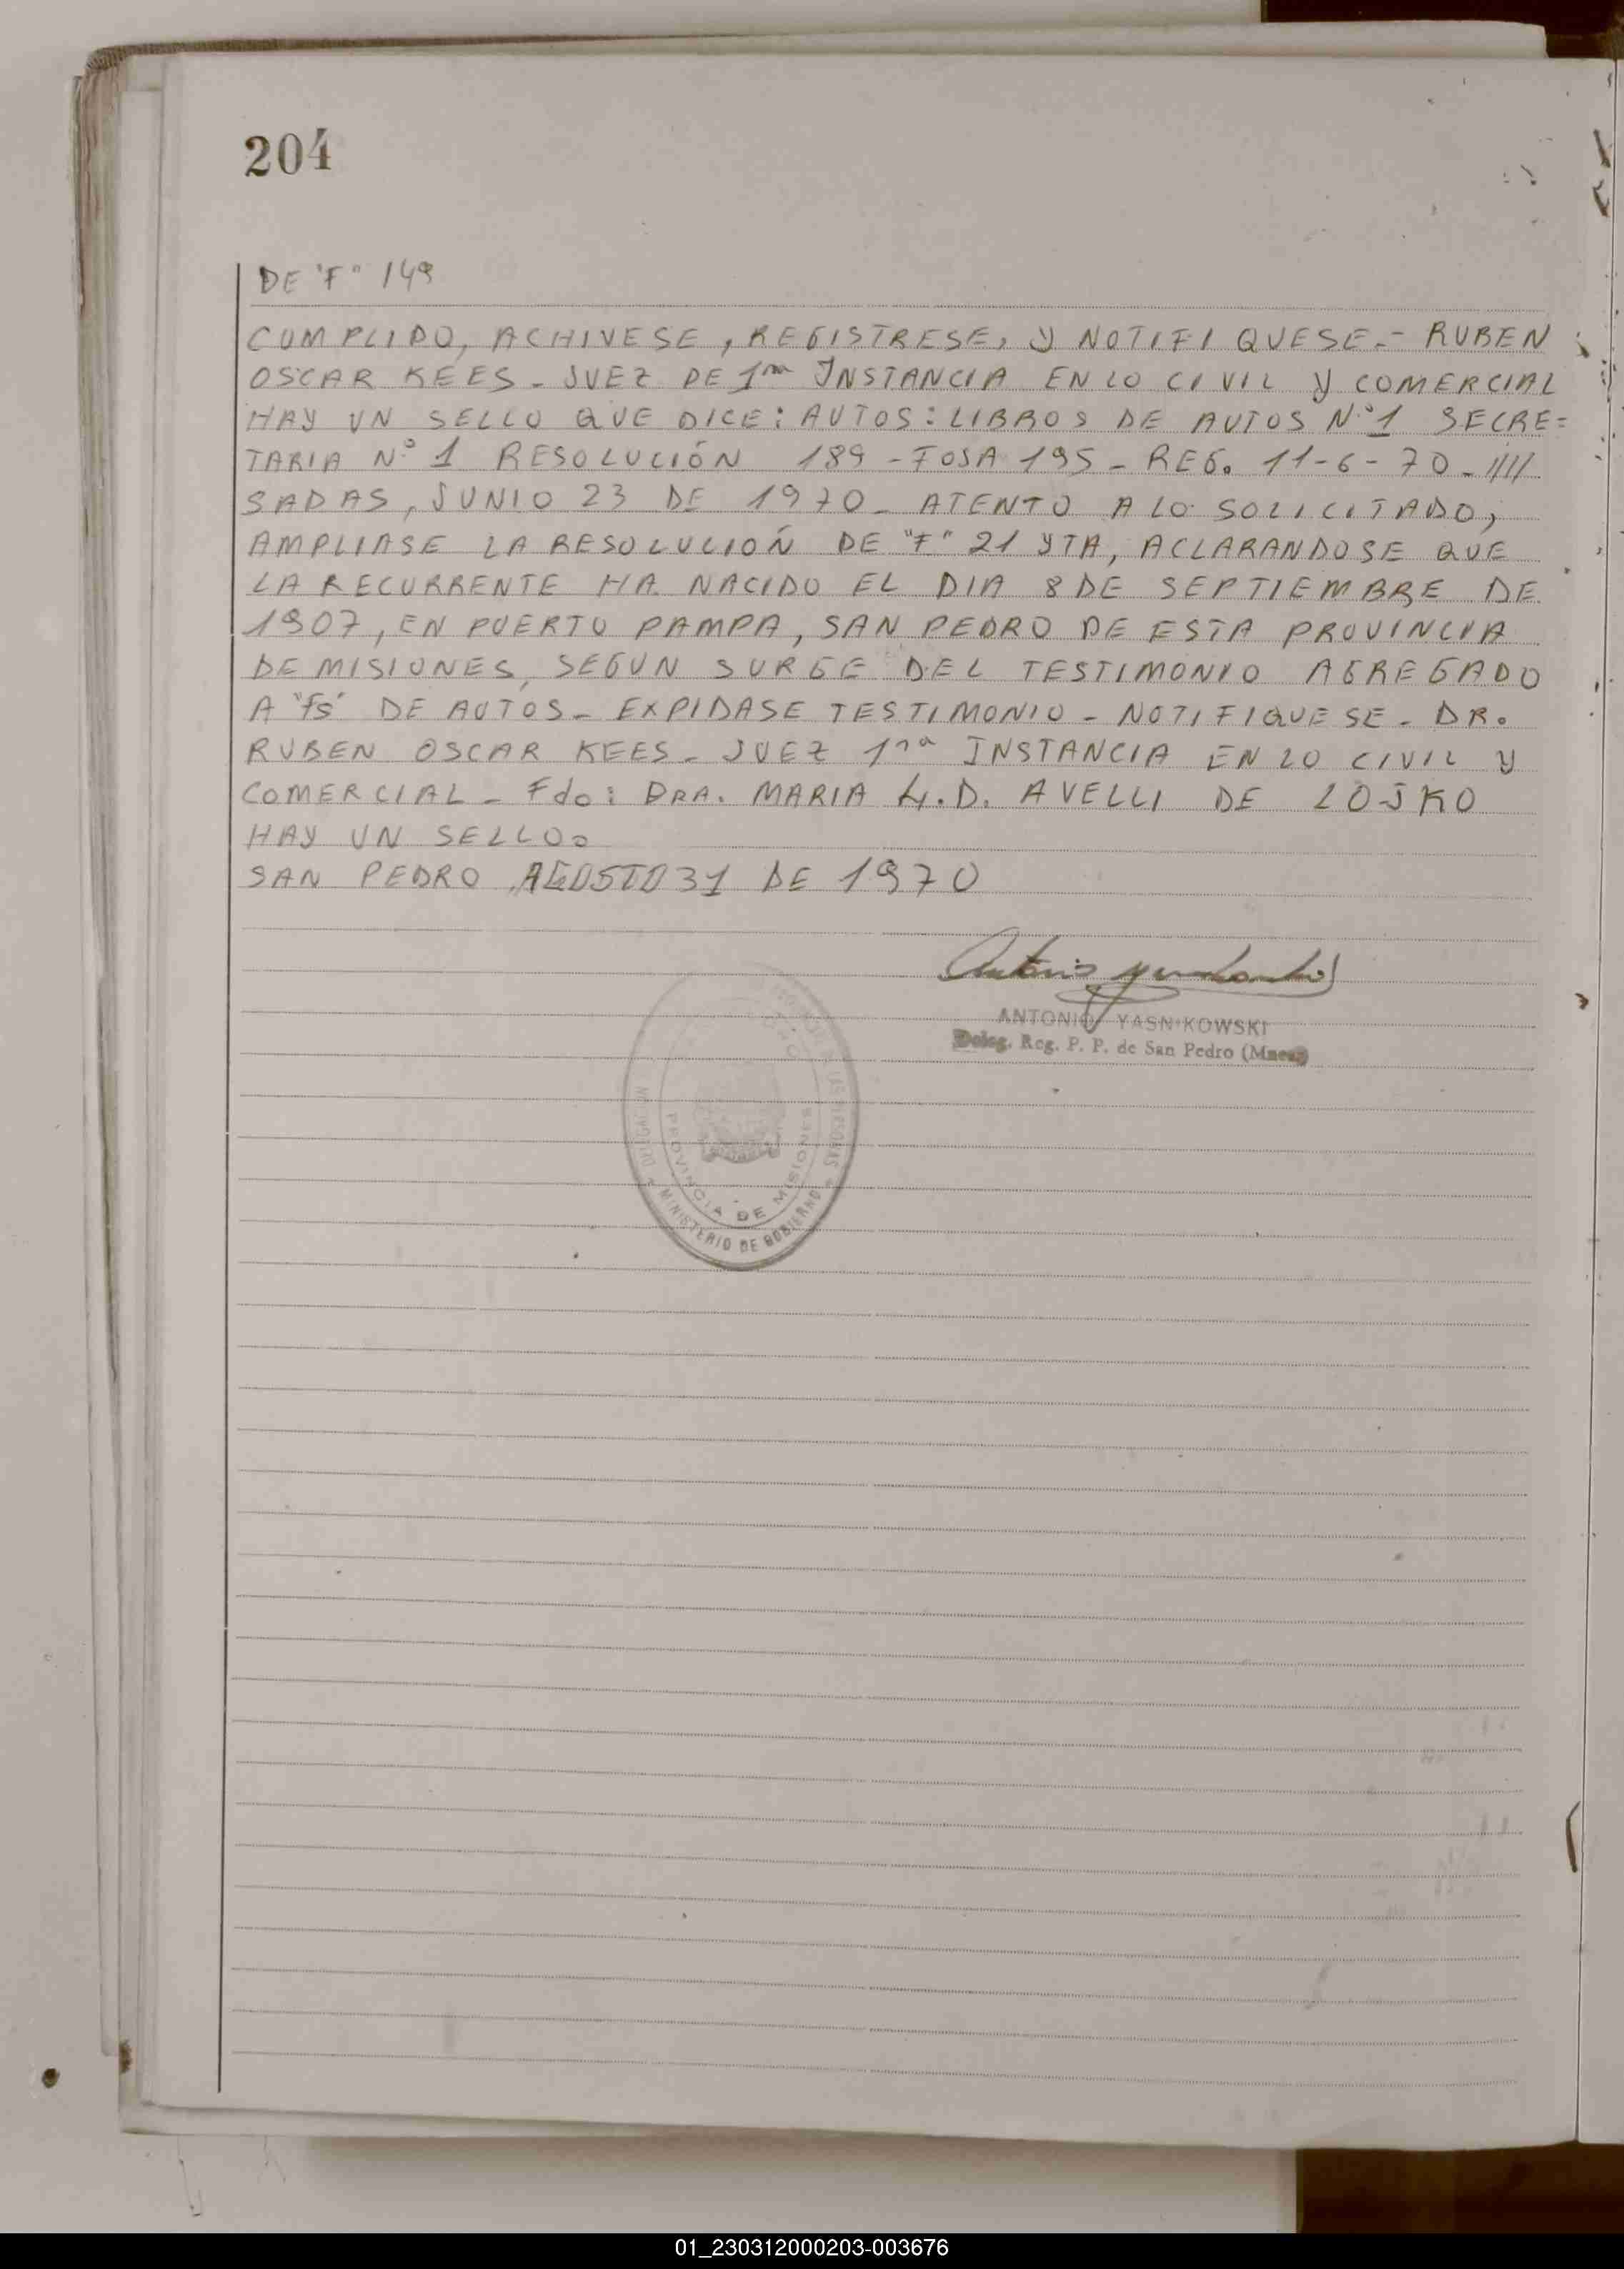 204
DE "F" 149
CUMPLIDO, ACHIVESE, REGISTRESE, Y NOTIFIQUESE.- RUBEN
OSCAR KEES - JUEZ DE 1ra INSTANCIA EN LO CIVIL Y COMERCIAL
HAY UN SELLO QUE DICE: AUTOS: LIBROS DE AUTOS N°1 SECRE=
TARIA N° 1 RESOLUCIÓN 189 - FOJA 195 - REG. 11-6-70 - ////
SADAS, JUNIO 23 DE 1970 - ATENTO A LO SOLICITADO,
AMPLIASE LA RESOLUCIÓN DE "F" 21 YTA, ACLARANDOSE QUE
LA RECURRENTE HA NACIDO EL DIA 8 DE SEPTIEMBRE DE
1907, EN PUERTO PAMPA, SAN PEDRO DE ESTA PROVINCIA
DE MISIONES, SEGUN SURGE DEL TESTIMONIO AGREGADO
A "fs" DE AUTOS - EXPIDASE TESTIMONIO - NOTIFIQUESE - DR.
RUBEN OSCAR KEES - JUEZ 1ra INSTANCIA EN LO CIVIL Y
COMERCIAL - Fdo: DRA. MARIA L. D. AVELLI DE LOJKO
HAY UN SELLO
SAN PEDRO AGOSTO 31 DE 1970
ANTONIO YASNIKOWSKI
Deleg. Reg. P. P. de San Pedro (Mnes)
DELEGACION
LAS PERSONAS
PROVINCIA DE MISIONES
MINISTERIO DE GOBIERNO
01_230312000203-003676